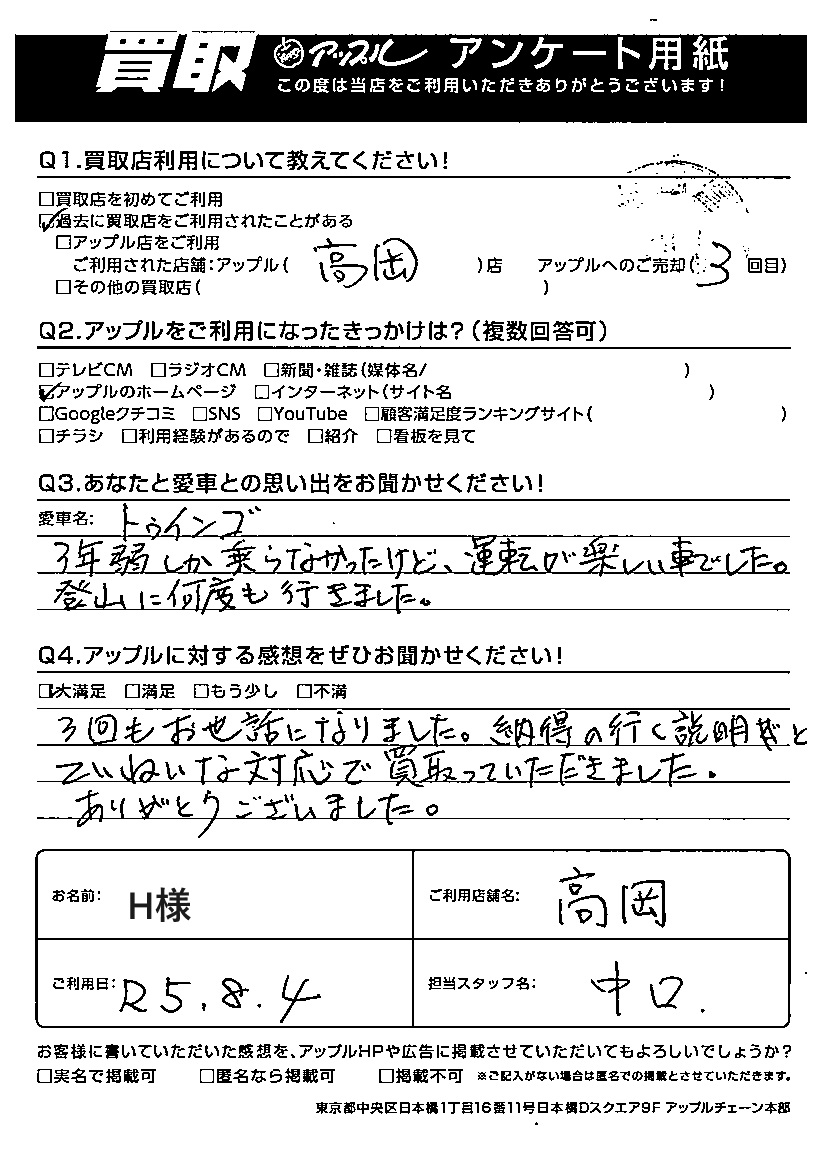 買取 アップル アンケート用紙
この度は当店をご利用いただきありがとうございます!
Q1.買取店利用について教えてください!
□買取店を初めてご利用
☑過去に買取店をご利用されたことがある
□アップル店をご利用
ご利用された店舗:アップル( 高岡 )店 アップルへのご売却( 3 回目)
□その他の買取店( )
Q2.アップルをご利用になったきっかけは?(複数回答可)
□テレビCM □ラジオCM □新聞・雑誌(媒体名/ )
☑アップルのホームページ □インターネット(サイト名 )
□Googleクチコミ □SNS □YouTube □顧客満足度ランキングサイト( )
□チラシ □利用経験があるので □紹介 □看板を見て
Q3.あなたと愛車との思い出をお聞かせください!
愛車名: トゥインゴ
3年弱しか乗らなかったけど、運転が楽しい車でした。
登山に何度も行きました。
Q4.アップルに対する感想をぜひお聞かせください!
☑大満足 □満足 □もう少し □不満
3回もお世話になりました。納得の行く説明など
ていねいな対応で買取っていただきました。
ありがとうございました。
お名前: H様 ご利用店舗名: 高岡
ご利用日: R5.8.4 担当スタッフ名: 中口.
お客様に書いていただいた感想を、アップルHPや広告に掲載させていただいてもよろしいでしょうか?
□実名で掲載可 □匿名なら掲載可 □掲載不可 ※ご記入がない場合は匿名での掲載とさせていただきます。
東京都中央区日本橋1丁目16番11号日本橋Dスクエア9F アップルチェーン本部